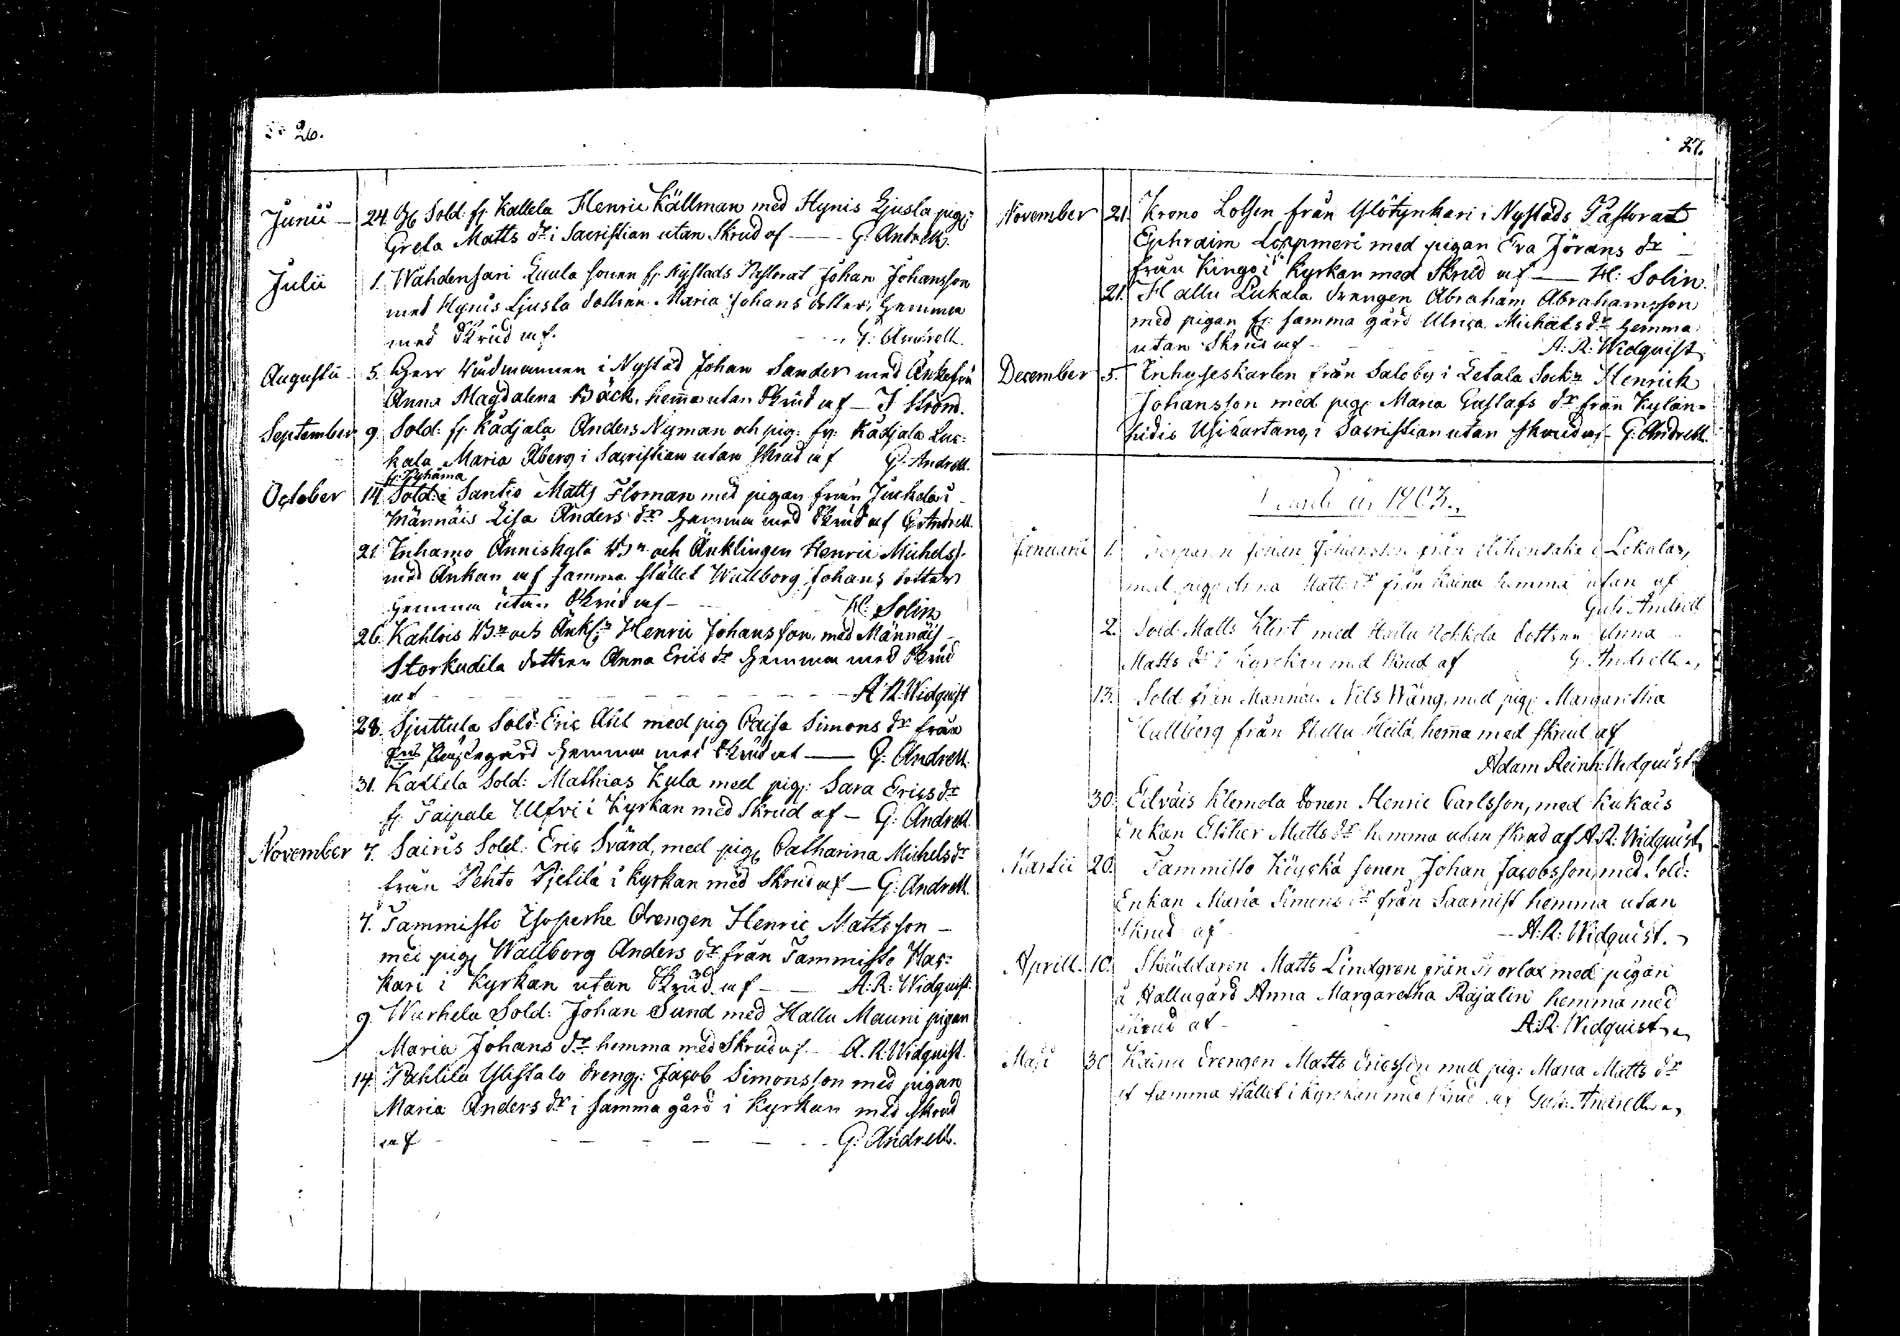 26.
Junii 24. Sold: fr Kallela Henric Källman med Hynis Ljusla pig:
Greta Matts dr i Sacristian utan Skrud af — G: Andrell.
Julii 1. Wähdensari Laula sonen fr Nystads Pastorat Johan Johansson
med Hynis Ljusla dottren Maria Johans dotter, hemma
med Skrud af. G: Andrell.
Augusti 5. Herr Rådmannen i Nystad Johan Sander med Änkefru
Anna Magdalena Bäck, hema utan Skrud af — J Ström.
September 9. Sold: fr Kådjala Anders Nyman och pig: fr: Kådjala Luc=
kala Maria Åberg i Sacristian utan Skrud af G: Andrell.
fr: Pyhäma
October 14. Sold: i Santio Matts Floman med pigan från Juckola i
Männäis Lisa Anders dr hemma med Skrud af G: Andrell.
21. Inhamo Änniskylä Bn och Änklingen Henric Michelss:
med Änkan af samma stället Wallborg Johans dotter
hemma utan Skrud af — H: Solin
26. Kahlois Bn och Änkl: Henric Johansson, med Männäis
Storkudila dottren Anna Erics dr hemma med Skrud
af — A: R: Widquist
28. Sjuttula Sold: Eric Asil med pig Caisa Simons dr från
Prästegård hemma med Skrud af — G: Andrell.
31. Kallela Sold: Mathias Kula med pig: Sara Erics dr
fr. Taipale Ulfvi i Kyrkan med Skrud af — G: Andrell.
November 7. Sairis Sold: Eric Svärd, med pig: Catharina Michels dr
från Pehto Pjelilä i kyrkan med Skrud af — G: Andrell.
7. Tammisto Isoperhe Drengen Henric Mattsson —
med pig: Wallborg Anders dr från Tammisto Has=
kari i Kyrkan utan Skrud af — A: R: Widquist.
9. Warhela Sold: Johan Sund med Hallu Mauni pigan
Maria Johans dr hemma med Skrud af. A. R. Widquist.
14. Pahlila Ylistalo dreng: Jacob Simonsson med pigan
Maria Anders dr i samma gård i Kyrkan med Skrud
af — G: Andrell.
27.
November 21. Krono Lotsen från Ylökynkari i Nystads Pastorat
Ephraim Loppmeri med pigan Eva Jörans dr
från Kingo i Kyrkan med Skrud af — H: Solin.
21. Hallu Lukala drengen Abraham Abrahamsson
med pigan fr: samma gård Ulrica Michels dr hemma
utan Skrud af A: R: Widquist
December 5. Inhyseskarlen från Saleby i Letala Sockn Henrick
Johansson med pig: Maria Gustafs dr från Kylän=
pidis Usicartano, i Sacristian utan Skrud af — G: Andrell.
år 1803.
Januarii 1. sonen Johansson från i Lokalax,
med pig: Anna Matts dr från Kaina hemma utan af
Gust: Andrell
2. Sold: Matts Klint med Hallu Uckola dottren Anna
Matts dr i Kyrckan med Skrud af G: Andrell
13. Sold från Männäis Nils Wäng, med pig: Margaretha
Hullberg från Hallu Heilä, hema med skrud af
Adam Reinh: Widquist
30. Edväis Klemola Sonen Henric Carlsson, med Kukais
Enkan Esther Matts dr hemma utan skrud af A R: Widquist
Martii 20. Tammisto Köyckä sonen Johan Jacobsson med Sold:
Enkan Maria Simons dr från Saarnist hemma utan
Skrud af — A: R: Widquist.
Aprill. 10. Skräddaren Matts Lindgren från Torlax med pigan
å Hallugård Anna Margaretha Rajalin hemma med
Skrud af A: R: Widquist
Maji 30 Kaina drengen Matts Ericsson med pig: Maria Matts dr
af samma stället i kyrckan med Skrud af Gust: Andrell